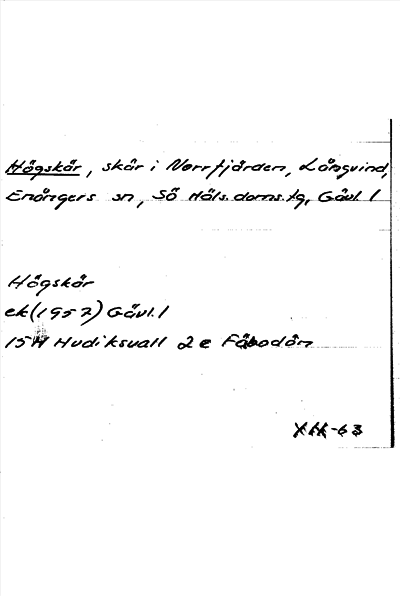 Högskär, skär i Norrfjärden, Långvind,
Enångers sn, Sö Häls. doms. tg, Gävl. l
Högskär
ek (1957) Gävl. l
15 H Hudiksvall 2 e Fäbodön